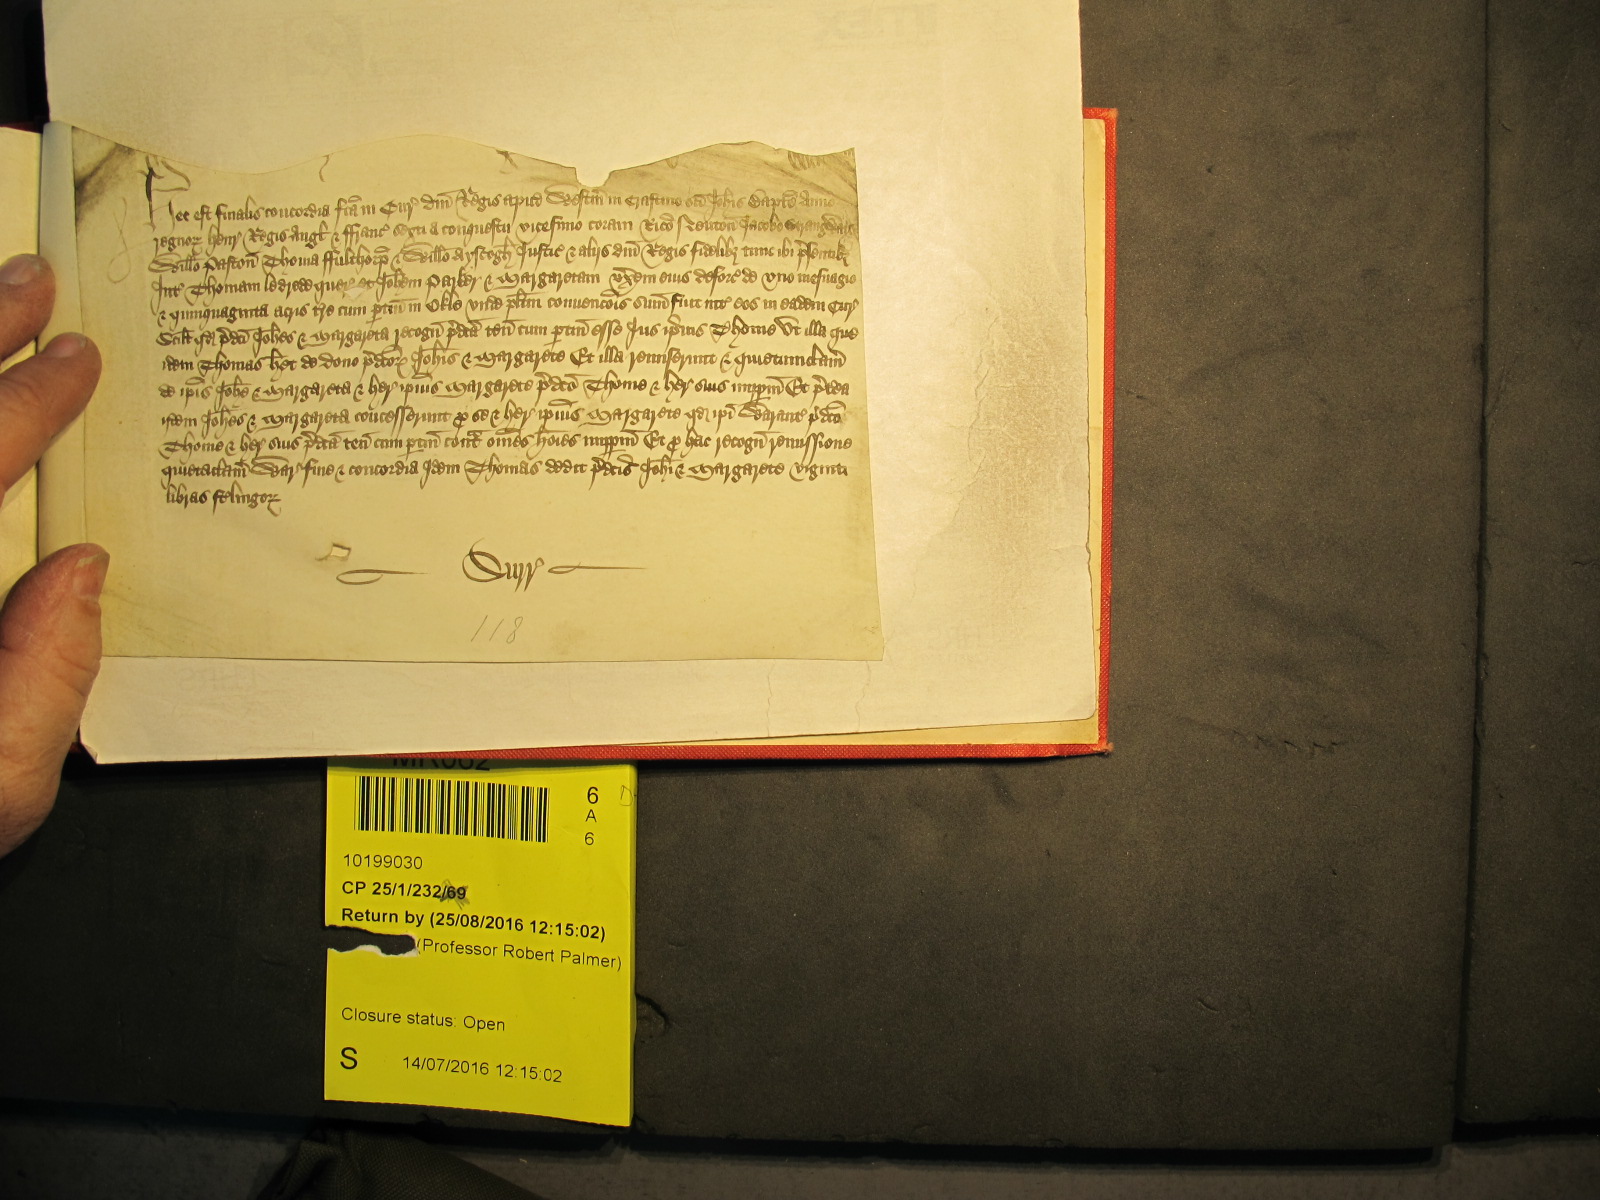 Hec est finalis concordia fca in Cur dni Regis apud Westm in Crastino sci Johis Baptiste Anno
regnor Henr Regis Angl & ffranc Sexti a conquestu vicesimo coram Rico Neuton Jacobo
Willo Paston Thoma ffulthorp & Willo Ayscogh Justic & aliis dni Regis fidelibz tunc ibi psentibz
Int Thomam quer et Johem Parker & Margaretam vxem eius deforc de vno mesuagio
& quinquaginta acris tre cum ptin in Okle vnde plitm convencois sum fuit int eos in eadem Cur
Scilt qd pdci Johes & Margareta recogn pdca ten cum ptin esse Jus ipius Thome Vt illa que
idem Thomas het de dono pdcor Johis & Margarete Et illa remiserunt & quietumclam
de ipis Johe & Margareta & her ipius Margarete pdco Thome & her suis imppm Et pterea
idem Johes & Margareta concesserunt p se & her ipius Margarete qd ipi Warant pdco
Thome & her suis pdca ten cum ptin cont omes hoies imppm Et p hac recogn remissione
quietaclam War fine & concordia Idem Thomas dedit pdcis Johi & Margarete viginti
libras strlingor
Surr
118
6
A
6
10199030
CP 25/1/232/69
Return by (25/08/2016 12:15:02)
(Professor Robert Palmer)
Closure status: Open
S 14/07/2016 12:15:02